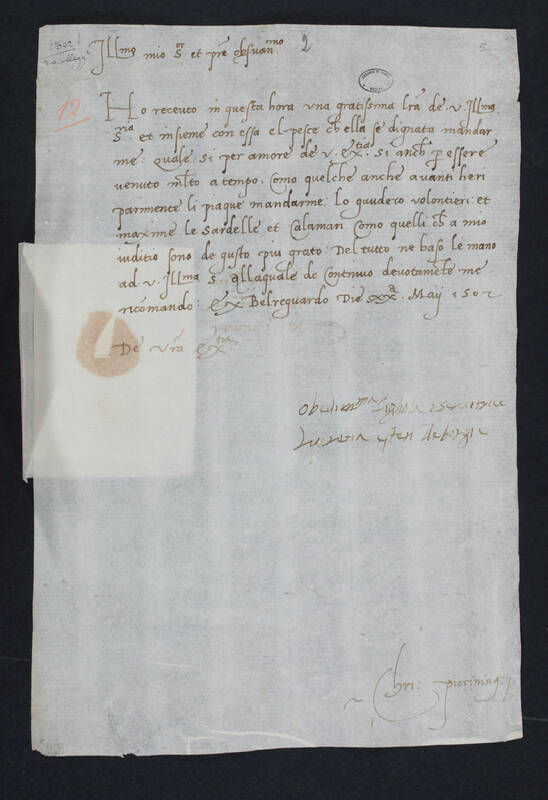 1502
20. Magg
Illmo mio Sor et pre obsvan.mo
2
5
12.
Ho receuto in questa hora una gratissima lra de v. Illma
Sria. et insieme con essa el pesce ch ella se dignata mandar
me: quale si per amore de v. extia. Si anch p essere
venuto mlto a tempo. Como quelche anche avanti heri
parimente li piaque mandarme: Lo gaudero volontieri: et
maxime le Sardelle et Calamari. Como quelli ch a mio
iuditio sono de gusto piu grato: Del tutto ne baso le mano
ad. v. Illma S. alla quale de Continuo devotamete me
ricomando: Ex Belreguardo Die xxa. Maij 1502
De vra extia
Obedientma figliola e servitrice
Lucretia esten de borgia
Chri: piccininus